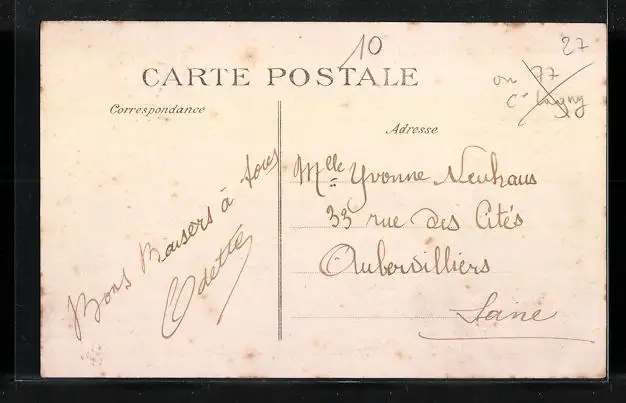 10
27
77
CARTE POSTALE
Correspondance
Adresse
Bons Baisers à tous
Odette
Mlle Yvonne Neuhaus
33 rue des Cités
Aubervilliers
Seine